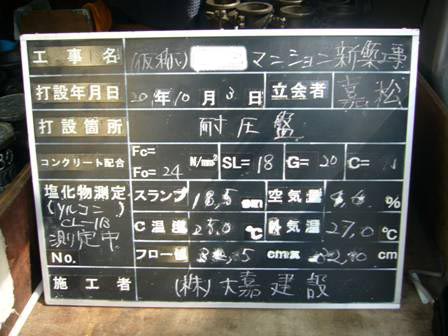 工事名 (仮称) マンション新築工事
打設年月日 20年10月3日 立会者 嘉松
打設箇所 耐圧盤
コンクリート配合 Fc= Fo=24 N/mm² SL=18 G=20 C=
塩化物測定 スランプ 18.5 cm 空気量 %
(ソルコン) CL-1B C温度 25.0 ℃ 外気温 27.0 ℃
測定中 フロー値 cm cm
No.
施工者 (株)大嘉建設